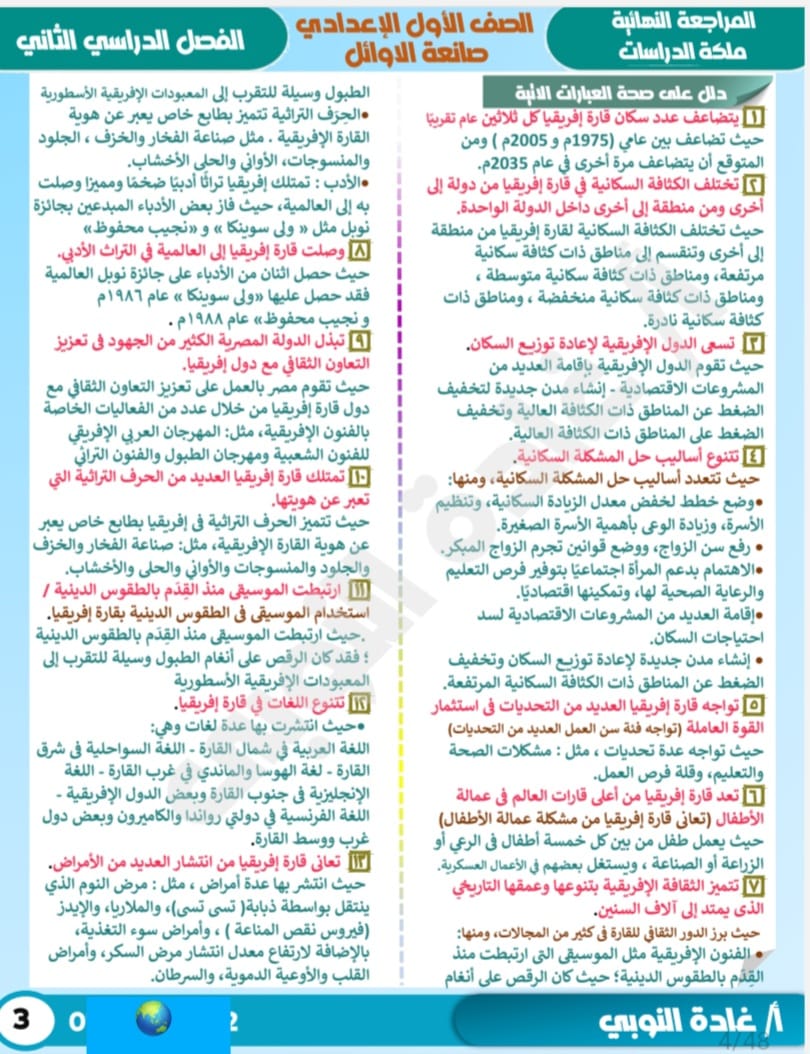 المراجعة النهائية
ملكة الدراسات
الصف الأول الإعدادي
صانعة الاوائل
الفصل الدراسي الثاني
دلل على صحة العبارات الاتية
١ يتضاعف عدد سكان قارة إفريقيا كل ثلاثين عام تقريبًا
حيث تضاعف بين عامي (1975م و 2005م ) ومن
المتوقع أن يتضاعف مرة أخرى في عام 2035م.
٢ تختلف الكثافة السكانية في قارة إفريقيا من دولة إلى
أخرى ومن منطقة إلى أخرى داخل الدولة الواحدة.
حيث تختلف الكثافة السكانية لقارة إفريقيا من منطقة
إلى أخرى وتنقسم إلى مناطق ذات كثافة سكانية
مرتفعة، ومناطق ذات كثافة سكانية متوسطة ،
ومناطق ذات كثافة سكانية منخفضة ، ومناطق ذات
كثافة سكانية نادرة.
٣ تسعى الدول الإفريقية لإعادة توزيع السكان.
حيث تقوم الدول الإفريقية بإقامة العديد من
المشروعات الاقتصادية - إنشاء مدن جديدة لتخفيف
الضغط عن المناطق ذات الكثافة العالية وتخفيف
الضغط على المناطق ذات الكثافة العالية.
٤ تتنوع أساليب حل المشكلة السكانية.
حيث تتعدد أساليب حل المشكلة السكانية، ومنها:
•وضع خطط لخفض معدل الزيادة السكانية، وتنظيم
الأسرة، وزيادة الوعى بأهمية الأسرة الصغيرة.
• رفع سن الزواج، ووضع قوانين تجرم الزواج المبكر.
•الاهتمام بدعم المرأة اجتماعيًا بتوفير فرص التعليم
والرعاية الصحية لها، وتمكينها اقتصاديًا.
•إقامة العديد من المشروعات الاقتصادية لسد
احتياجات السكان.
• إنشاء مدن جديدة لإعادة توزيع السكان وتخفيف
الضغط عن المناطق ذات الكثافة السكانية المرتفعة.
٥ تواجه قارة إفريقيا العديد من التحديات فى استثمار
القوة العاملة (تواجه فئة سن العمل العديد من التحديات)
حيث تواجه عدة تحديات ، مثل : مشكلات الصحة
والتعليم، وقلة فرص العمل.
٦ تعد قارة إفريقيا من أعلى قارات العالم فى عمالة
الأطفال (تعانى قارة إفريقيا من مشكلة عمالة الأطفال)
حيث يعمل طفل من بين كل خمسة أطفال فى الرعي أو
الزراعة أو الصناعة ، ويستغل بعضهم في الأعمال العسكرية.
٧ تتميز الثقافة الإفريقية بتنوعها وعمقها التاريخي
الذى يمتد إلى آلاف السنين.
حيث برز الدور الثقافي للقارة فى كثير من المجالات، ومنها:
• الفنون الإفريقية مثل الموسيقى التى ارتبطت منذ
القِدَم بالطقوس الدينية؛ حيث كان الرقص على أنغام
الطبول وسيلة للتقرب إلى المعبودات الإفريقية الأسطورية
•الحِرَف التراثية تتميز بطابع خاص يعبر عن هوية
القارة الإفريقية . مثل صناعة الفخار والخزف ، الجلود
والمنسوجات، الأواني والحلى الأخشاب.
•الأدب : تمتلك إفريقيا تراثًا أدبيًا ضخمًا ومميزا وصلت
به إلى العالمية، حيث فاز بعض الأدباء المبدعين بجائزة
نوبل مثل « ولى سوينكا » و «نجيب محفوظ»
٨ وصلت قارة إفريقيا إلى العالمية في التراث الأدبي.
حيث حصل اثنان من الأدباء على جائزة نوبل العالمية
فقد حصل عليها «ولى سوينكا » عام ١٩٨٦م
و نجيب محفوظ» عام ١٩٨٨م .
٩ تبذل الدولة المصرية الكثير من الجهود فى تعزيز
التعاون الثقافي مع دول إفريقيا.
حيث تقوم مصر بالعمل على تعزيز التعاون الثقافي مع
دول قارة إفريقيا من خلال عدد من الفعاليات الخاصة
بالفنون الإفريقية، مثل: المهرجان العربي الإفريقي
للفنون الشعبية ومهرجان الطبول والفنون التراثي
١٠ تمتلك قارة إفريقيا العديد من الحرف التراثية التي
تعبر عن هويتها.
حيث تتميز الحرف التراثية فى إفريقيا بطابع خاص يعبر
عن هوية القارة الإفريقية، مثل: صناعة الفخار والخزف
والجلود والمنسوجات والأوانى والحلى والأخشاب.
١١ ارتبطت الموسيقى منذ القِدَم بالطقوس الدينية /
استخدام الموسيقى فى الطقوس الدينية بقارة إفريقيا.
.حيث ارتبطت الموسيقى منذ القِدَم بالطقوس الدينية
؛ فقد كان الرقص على أنغام الطبول وسيلة للتقرب إلى
المعبودات الإفريقية الأسطورية
١٢ تتنوع اللغات في قارة إفريقيا.
•حيث انتشرت بها عدة لغات وهي:
اللغة العربية في شمال القارة - اللغة السواحلية فى شرق
القارة - لغة الهوسا والماندي في غرب القارة - اللغة
الإنجليزية في جنوب القارة وبعض الدول الإفريقية -
اللغة الفرنسية في دولتي رواندا والكاميرون وبعض دول
غرب ووسط القارة.
١٣ تعانى قارة إفريقيا من انتشار العديد من الأمراض.
حيث انتشر بها عدة أمراض ، مثل : مرض النوم الذي
ينتقل بواسطة ذبابة( تسى تسى)، والملاريا، والإيدز
(فيروس نقص المناعة ) ، وأمراض سوء التغذية،
بالإضافة لارتفاع معدل انتشار مرض السكر، وأمراض
القلب والأوعية الدموية، والسرطان.
أ/ غادة النوبي
4/48
2
0
3